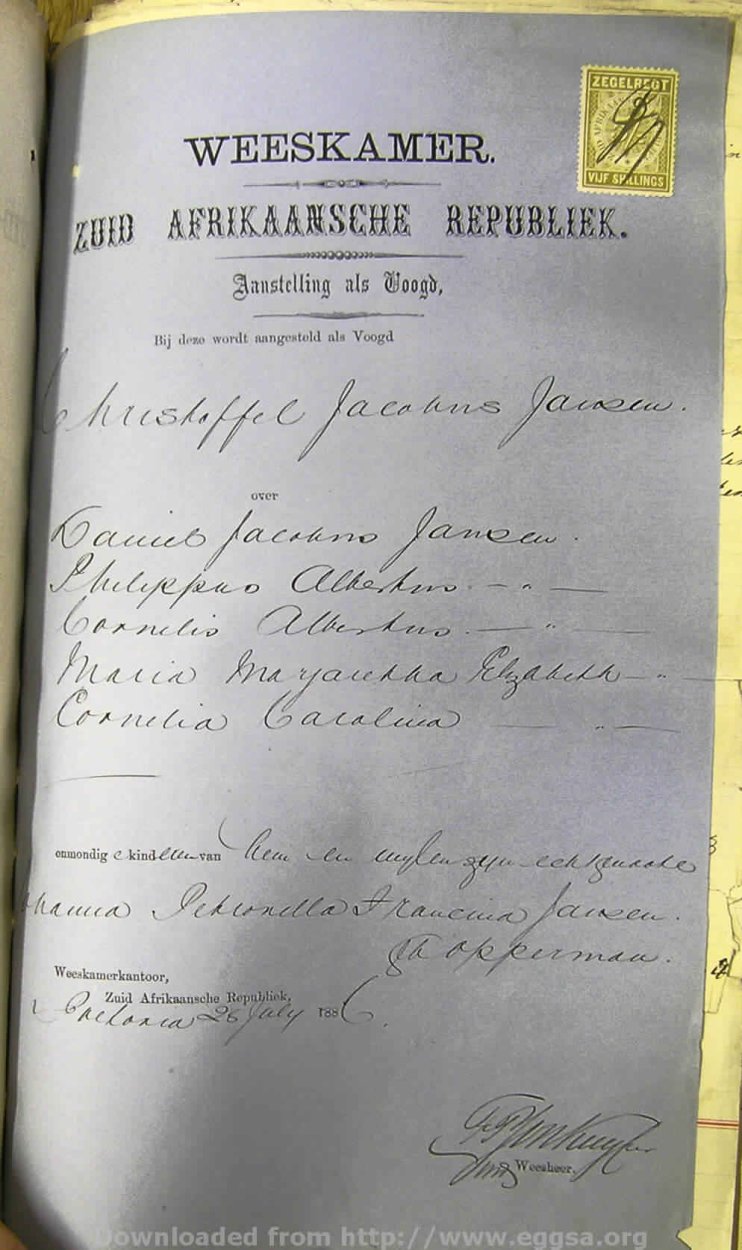 ZEGELREGT
VIJF SHILLINGS
WEESKAMER.
ZUID AFRIKAANSCHE REPUBLIEK.
Aanstelling als Voogd,
Bij deze wordt aangesteld als Voogd
Christoffel Jacobus Jansen.
over
Daniel Jacobus Jansen.
Philippus Albertus — " —
Cornelis Albertus. — " —
Maria Margaretha Elizabeth — " —
Cornelia Carolina — " —
onmondige kinderen van hem en wylen zyn echtgenoote
Johanna Petronella Francina Jansen.
Opperman.
Weeskamerkantoor,
Zuid Afrikaansche Republiek,
Pretoria 26 July 1886.
Weesheer.
Downloaded from http://www.eggsa.org